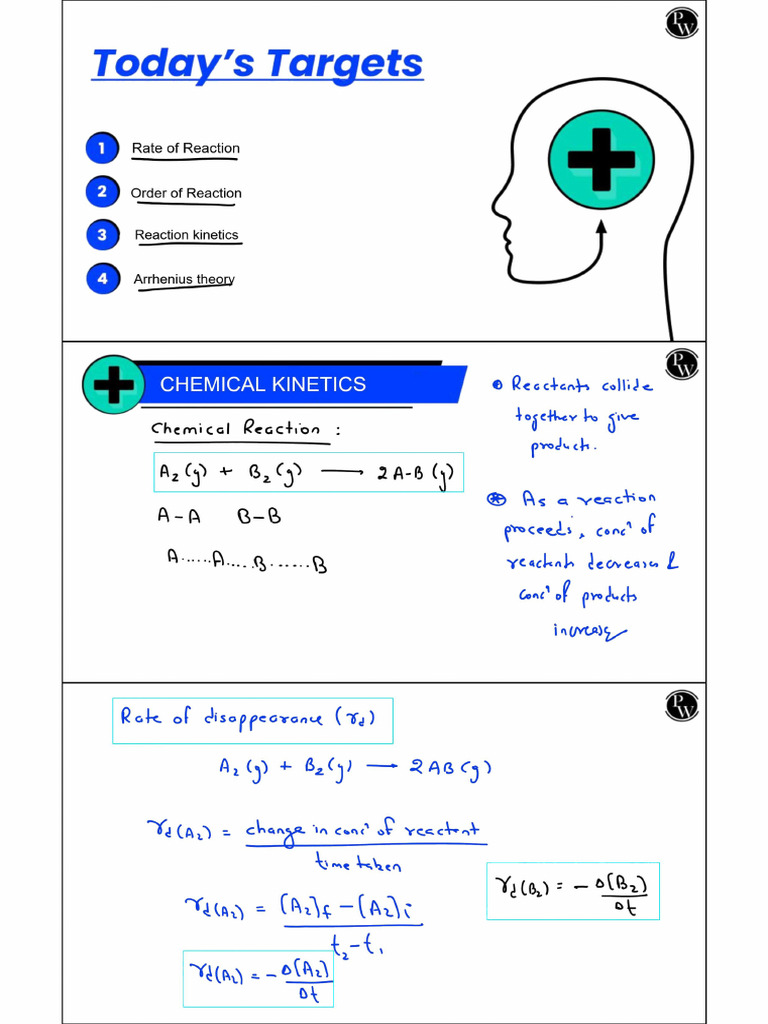 PW
Today's Targets
1 Rate of Reaction
2 Order of Reaction
3 Reaction kinetics
4 Arrhenius theory
PW
CHEMICAL KINETICS
Chemical Reaction :
A₂(g) + B₂(g) ⟶ 2A-B(g)
A-A B-B
A......A.....B.......B
Reactants collide
together to give
products.
As a reaction
proceeds, concⁿ of
reactants decreases &
concⁿ of products
increases
PW
Rate of disappearance (r_d)
A₂(g) + B₂(g) ⟶ 2AB(g)
r_d(A₂) = change in concⁿ of reactant
time taken
r_d(A₂) = (A₂)f - (A₂)i
t₂-t₁
r_d(A₂) = - Δ(A₂)
Δt
r_d(B₂) = - Δ(B₂)
Δt